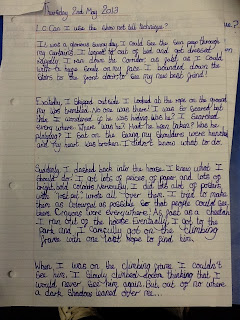 Thursday 2nd May 2013
L.O Can I use the show not tell technique?
It was a glorious sunny day, I could see the sun peep through
my curtains. I leaped out of bed and got dressed
rapidly. I ran down the corridor as fast as I could
with a huge smile on my face. I bounded down the
stairs to the front door to see my new best friend!
Excitedly, I stepped outside. I looked at the rope on the ground
my lips trembled. No one was there! I was so scared but
then I wondered if he was hiding, was he? I searched
everywhere. Where was he? Had he been taken? Was he
playing? I sat on the ground my shoulders were hunched
and my heart was broken. I didn't know what to do.
Suddenly, I dashed back into the house. I knew what I
should do! I got lots of pieces of paper and lots of
bright, bold colours. Nervously, I did lots a lot of posters
with 'lost pet' wrote all over them. I tried to make
them as colourful as possible so that people could see
them. Crayons went everywhere! As fast as a cheetah
I ran out of the house. Eventually, I got to the
park and I carefully got on the climbing
frame with one last hope to find him.
When I was on the climbing frame I couldn't
see him. I slowly climbed down thinking that I
would never see him again. But out of no where
a dark shadow leaned over me...